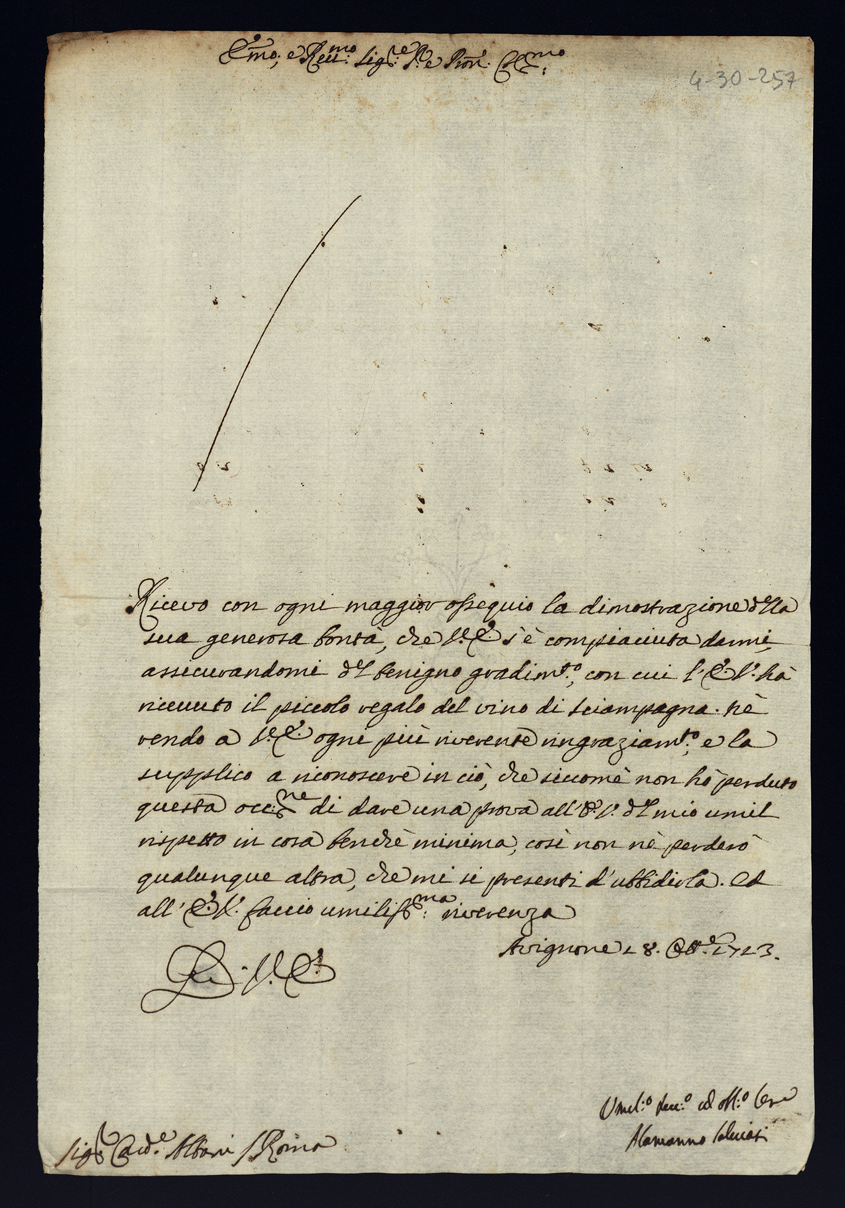 Em̃o; e Reu:mo Sig:re P.ne e Pron: Col:mo
4-30-257
Ricevo con ogni maggior ossequio la dimostrazione d'lla
sua generosa bontà, che V.E. s'è compiaciuta darmi,
assicurandomi d'l benigno gradim:to, con cui l'E.V. hà
riceuuto il piccolo regalo del vino di Sciampagna. Nè
rendo a V.E. ogni più riverente ringraziam:to, e la
supplico a riconoscere in ciò, che siccome non hò perduto
questa occ:ne di dare una prova all'E.V. d'l mio umil
rispetto in cosa benchè minima, così non nè perderò
qualunque altra, che mi si presenti d'ubbidirla. Ed
all'E.V. faccio umiliss:ma riverenza
Avignone 18. Ott:e 1713.
Di V.E.
Umil:o Deu:o ed obl:o Ser:e
Alamanno Salviati
Sig:r Card:e Albani / Roma